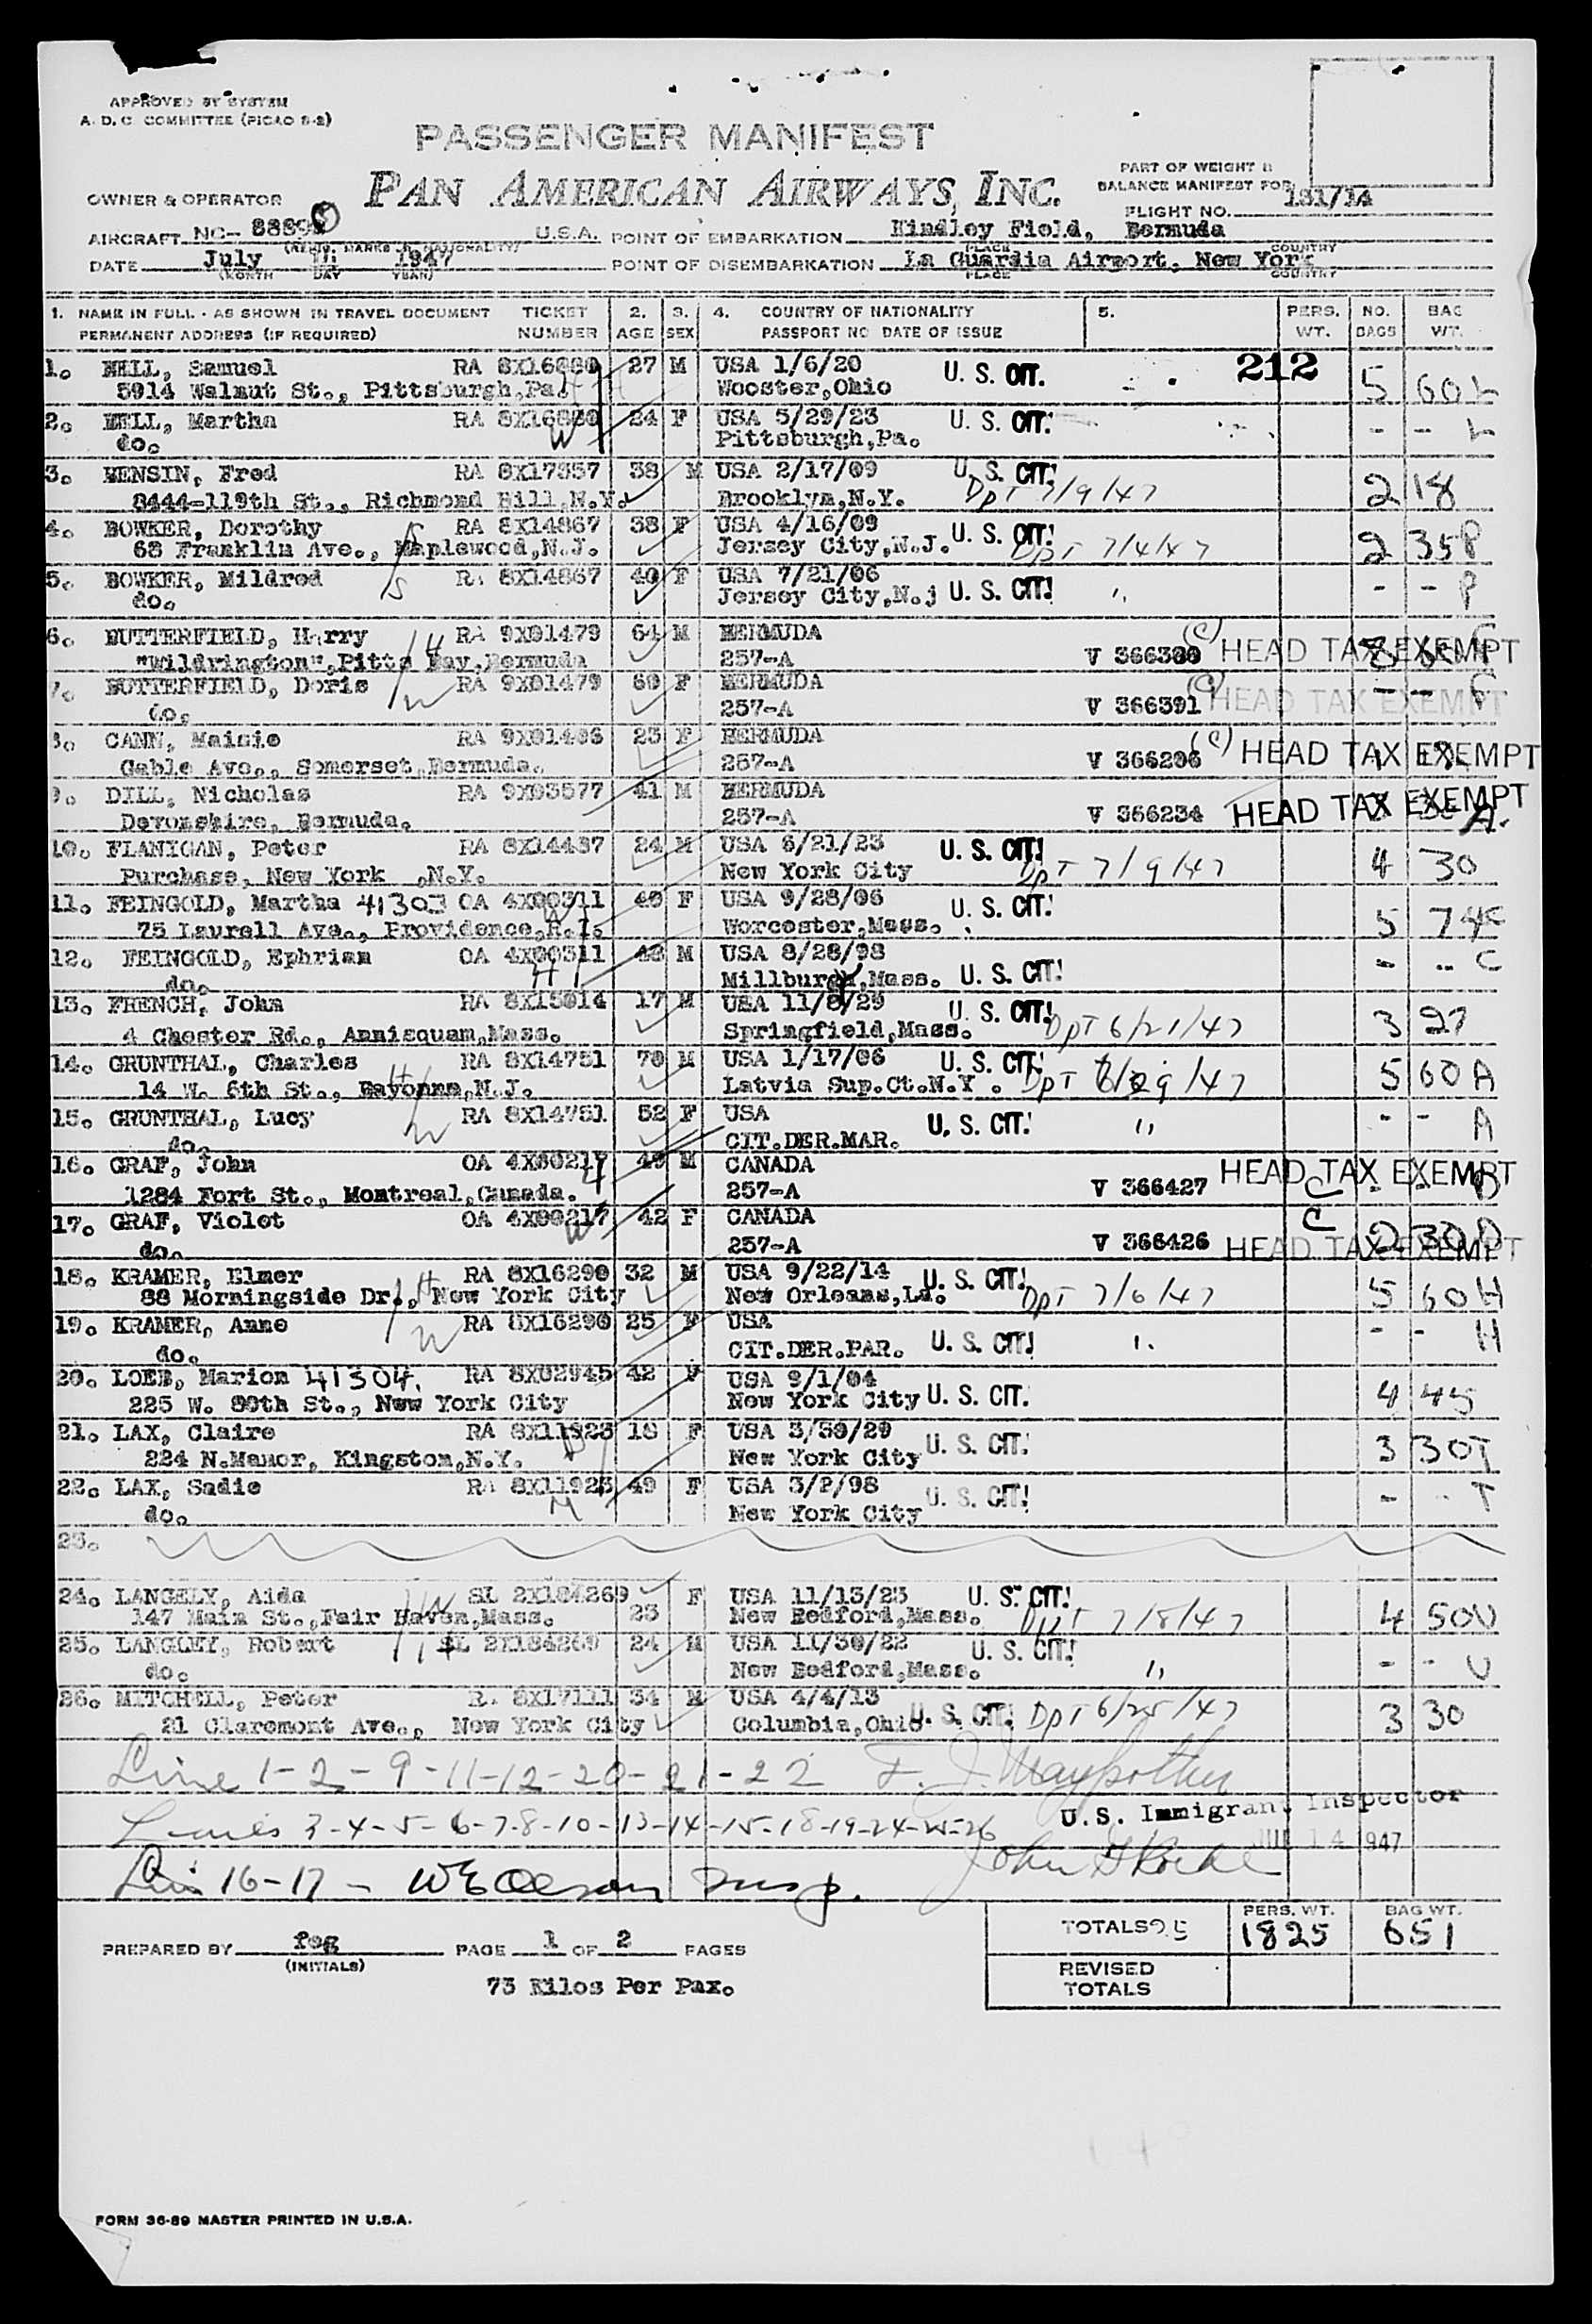 APPROVED BY SYSTEM
A. D. C. COMMITTEE (PICAO S-2)
PASSENGER MANIFEST
PAN AMERICAN AIRWAYS, INC.
PART OF WEIGHT &
BALANCE MANIFEST FOR
FLIGHT NO. 131/14
OWNER & OPERATOR
AIRCRAFT NC- U.S.A. POINT OF EMBARKATION Kindley Field, Bermuda
(REGIS. MARKS & NATIONALITY) PLACE COUNTRY
DATE July 1947 POINT OF DISEMBARKATION La Guardia Airport, New York
(MONTH DAY YEAR) PLACE COUNTRY
1. NAME IN FULL - AS SHOWN IN TRAVEL DOCUMENT TICKET 2. 3. 4. COUNTRY OF NATIONALITY 5. PERS. NO. BAG
PERMANENT ADDRESS (IF REQUIRED) NUMBER AGE SEX PASSPORT NO DATE OF ISSUE WT. BAGS WT.
212
1. Samuel RA 27 M USA 1/6/20 U. S. CIT.
5914 Walnut St., Pittsburgh,Pa. Wooster,Ohio 5 60 L
2. Martha RA 24 F USA 5/29/23 U. S. CIT.
do. Pittsburgh,Pa. - - L
3. Fred RA 8X17357 38 M USA 2/17/09 U. S. CIT!
8444-119th St., Richmond Hill,N.Y. Brooklyn,N.Y. DpT 7/9/47 2 18
4. BOWKER, Dorothy RA 8X14867 38 F USA 4/16/09 U. S. CIT!
68 Franklin Ave., Maplewood,N.J. Jersey City,N.J. DpT 7/4/47 2 35 P
5. BOWKER, Mildred RA 8X14867 40 F USA 7/21/06
do. Jersey City,N.j U. S. CIT! " - - P
6. BUTTERFIELD, Harry RA 9X01479 64 M BERMUDA (C)
"Wildrington",Pitts Bay,Bermuda 257-A V HEAD TAX EXEMPT
7. BUTTERFIELD, Doris RA 9X01479 F BERMUDA (C)
do. 257-A V 366391 HEAD TAX EXEMPT
8. CANN, Maisie RA 23 F BERMUDA (C)
Gable Ave., Somerset,Bermuda. 257-A V 366296 HEAD TAX EXEMPT
9. DILL, Nicholas RA 9X03577 41 M BERMUDA
Devonshire, Bermuda. 257-A V 366234 HEAD TAX EXEMPT
10. FLANIGAN, Peter RA 8X14437 24 M USA 6/21/23 U. S. CIT!
Purchase, New York ,N.Y. New York City DpT 7/9/47 4 30
11. FEINGOLD, Martha 41303 OA 4X00311 40 F USA 9/28/06 U. S. CIT.
75 Laurell Ave., Providence,R.I. Worcester,Mass. 5 74 C
12. FEINGOLD, Ephriam OA 4X00311 M USA 8/28/98
do. Mass. U. S. CIT! - - C
13. FRENCH, John RA 8X15014 17 M USA 11/8/29 U. S. CIT!
4 Chester Rd., Annisquam,Mass. Springfield,Mass. DpT 6/21/47 3 27
14. GRUNTHAL, Charles RA 8X14751 70 M USA 1/17/06 U. S. CIT.
14 W. 6th St., Bayonne,N.J. Latvia Sup.Ct.N.Y . DpT 6/29/47 5 60 A
15. GRUNTHAL, Lucy RA 8X14751 52 F USA U. S. CIT. "
do. CIT.DER.MAR. - - A
16. GRAF, John OA 4X00217 M CANADA
1284 Fort St., Montreal,Canada. 257-A V 366427 HEAD TAX EXEMPT
17. GRAF, Violet OA 4X00217 42 F CANADA C
do. 257-A V 366426 HEAD TAX EXEMPT
18. KRAMER, Elmer RA 8X16290 32 M USA 9/22/14 U. S. CIT!
88 Morningside Dr., New York City New Orleans,La. DpT 7/6/47 5 60 H
19. KRAMER, Anne RA 8X16290 25 F USA
do. CIT.DER.PAR. U. S. CIT! " - - H
20. LOEB, Marion 41304. RA 8X02945 42 F USA 9/1/04
225 W. St., New York City New York City U. S. CIT. 4 45
21. LAX, Claire RA 8X11923 18 F USA 3/30/29 U. S. CIT.
224 N.Manor, Kingston,N.Y. New York City 3 30 T
22. LAX, Sadie RA 8X11923 49 F USA 3/2/98 U. S. CIT!
do. New York City - - T
23.
24. LANGELY, Aida SL 2X184269 23 F USA 11/13/23 U. S. CIT!
147 Main St.,Fair Haven,Mass. New Bedford,Mass. DpT 7/8/47 4 50 U
25. LANGLEY, Robert SL 2X184269 24 M USA 11/30/22 U. S. CIT!
do. New Bedford,Mass. " - - U
26. MITCHELL, Peter RA 8X17111 34 M USA 4/4/13
21 Claremont Ave., New York City Columbia,Ohio U. S. CIT! DpT 6/25/47 3 30
Line 1-2-9-11-12-20-21-22
Lines 3-4-5-6-7-8-10-13-14-15-18-19-24-25-26
U.S. Immigrant Inspector
14 1947
Lin 16-17 - Insp.
PREPARED BY feg PAGE 1 OF 2 PAGES
(INITIALS)
TOTALS 25 PERS. WT. 1825 BAG WT. 651
REVISED
TOTALS
73 Kilos Per Pax.
FORM 36-89 MASTER PRINTED IN U.S.A.